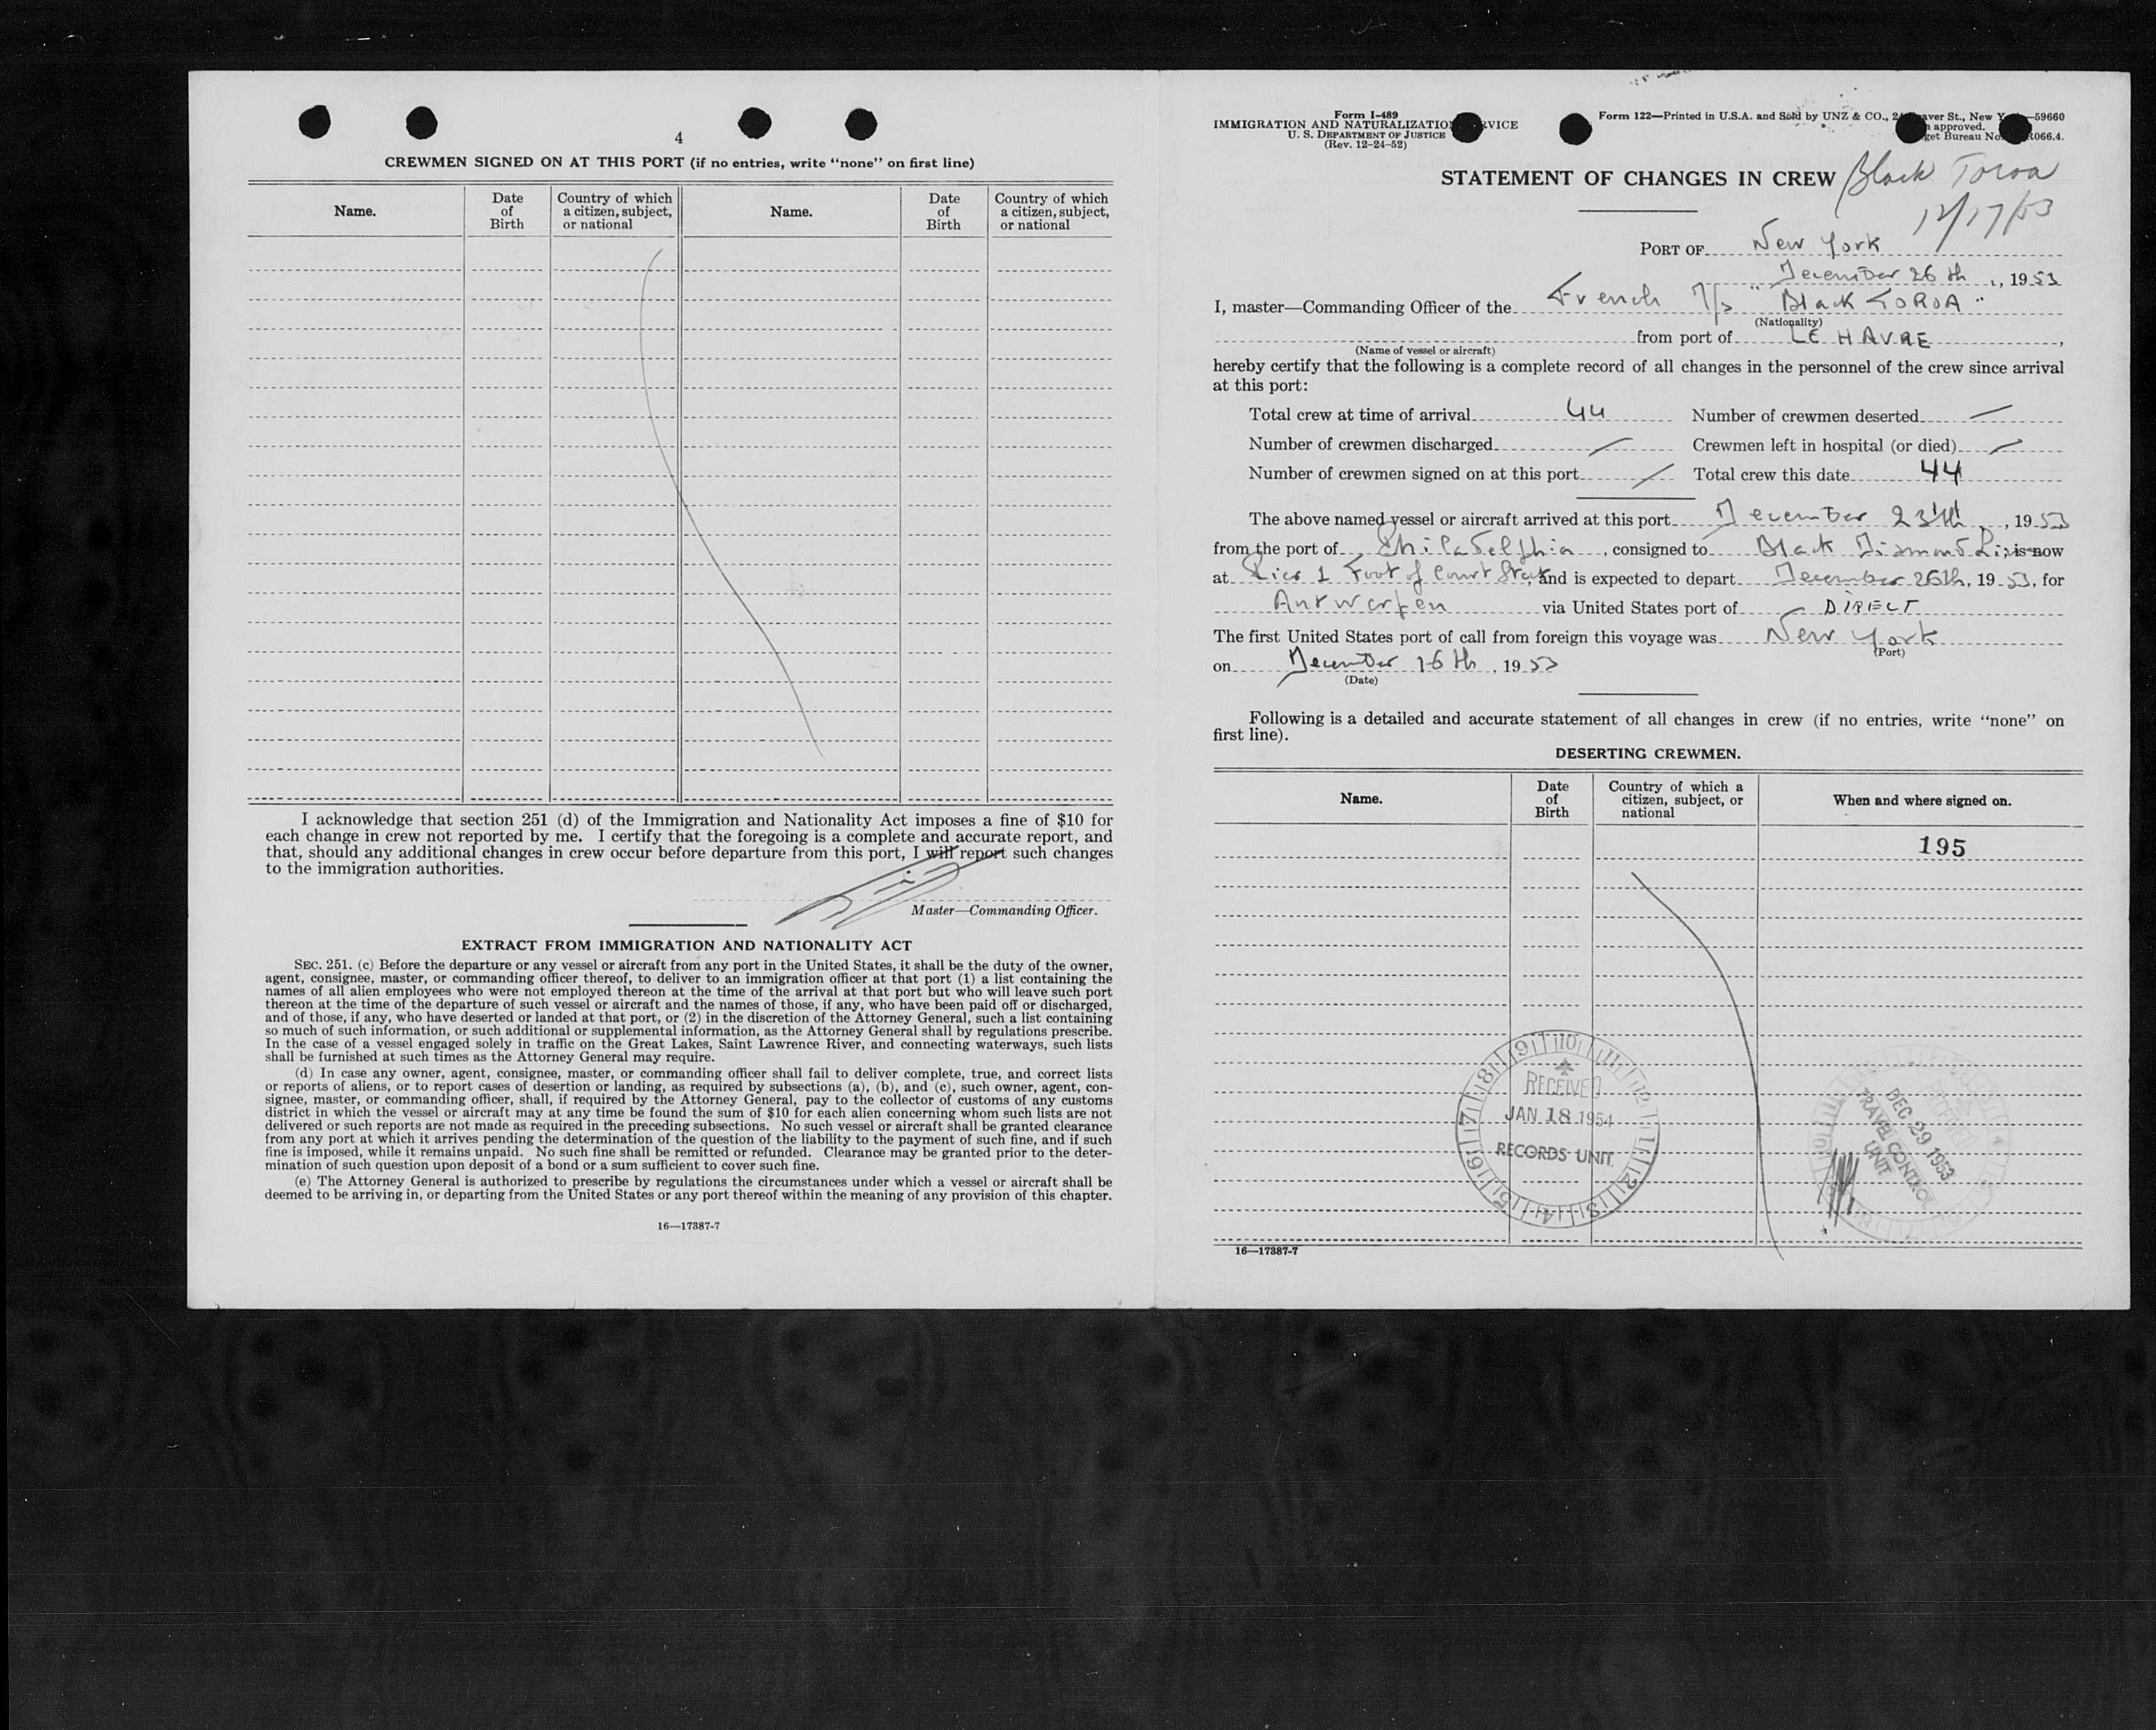 4
CREWMEN SIGNED ON AT THIS PORT (if no entries, write “none” on first line)
Name.
Date of Birth
Country of which a citizen, subject, or national
Name.
Date of Birth
Country of which a citizen, subject, or national
I acknowledge that section 251 (d) of the Immigration and Nationality Act imposes a fine of $10 for
each change in crew not reported by me. I certify that the foregoing is a complete and accurate report, and
that, should any additional changes in crew occur before departure from this port, I will report such changes
to the immigration authorities.
Master—Commanding Officer.
EXTRACT FROM IMMIGRATION AND NATIONALITY ACT
SEC. 251. (c) Before the departure or any vessel or aircraft from any port in the United States, it shall be the duty of the owner,
agent, consignee, master, or commanding officer thereof, to deliver to an immigration officer at that port (1) a list containing the
names of all alien employees who were not employed thereon at the time of the arrival at that port but who will leave such port
thereon at the time of the departure of such vessel or aircraft and the names of those, if any, who have been paid off or discharged,
and of those, if any, who have deserted or landed at that port, or (2) in the discretion of the Attorney General, such a list containing
so much of such information, or such additional or supplemental information, as the Attorney General shall by regulations prescribe.
In the case of a vessel engaged solely in traffic on the Great Lakes, Saint Lawrence River, and connecting waterways, such lists
shall be furnished at such times as the Attorney General may require.
(d) In case any owner, agent, consignee, master, or commanding officer shall fail to deliver complete, true, and correct lists
or reports of aliens, or to report cases of desertion or landing, as required by subsections (a), (b), and (c), such owner, agent, con-
signee, master, or commanding officer, shall, if required by the Attorney General, pay to the collector of customs of any customs
district in which the vessel or aircraft may at any time be found the sum of $10 for each alien concerning whom such lists are not
delivered or such reports are not made as required in the preceding subsections. No such vessel or aircraft shall be granted clearance
from any port at which it arrives pending the determination of the question of the liability to the payment of such fine, and if such
fine is imposed, while it remains unpaid. No such fine shall be remitted or refunded. Clearance may be granted prior to the deter-
mination of such question upon deposit of a bond or a sum sufficient to cover such fine.
(e) The Attorney General is authorized to prescribe by regulations the circumstances under which a vessel or aircraft shall be
deemed to be arriving in, or departing from the United States or any port thereof within the meaning of any provision of this chapter.
16—17387-7
Form I-489
IMMIGRATION AND NATURALIZATION SERVICE
U. S. DEPARTMENT OF JUSTICE
(Rev. 12-24-52)
Form 122—Printed in U.S.A. and Sold by UNZ & CO., 24 Beaver St., New Y —59660
approved.
Budget Bureau No. R066.4.
STATEMENT OF CHANGES IN CREW Black Toroa
12/17/53
PORT OF New York
December 26th, 1953
I, master—Commanding Officer of the French M/s "Black TOROA"
(Nationality)
from port of LE HAVRE,
(Name of vessel or aircraft)
hereby certify that the following is a complete record of all changes in the personnel of the crew since arrival
at this port:
Total crew at time of arrival 44 Number of crewmen deserted —
Number of crewmen discharged / Crewmen left in hospital (or died) /
Number of crewmen signed on at this port / Total crew this date 44
The above named vessel or aircraft arrived at this port December 23th, 1953
from the port of Philadelphia, consigned to Black Diamond Line; is now
at Pier 1 Foot of Court Street, and is expected to depart December 26th, 1953, for
Antwerpen via United States port of DIRECT
The first United States port of call from foreign this voyage was New York
(Port)
on December 16th, 1953
(Date)
Following is a detailed and accurate statement of all changes in crew (if no entries, write “none” on
first line).
DESERTING CREWMEN.
Name.
Date of Birth
Country of which a citizen, subject, or national
When and where signed on.
195
RECEIVED
JAN 18 1954
RECORDS UNIT
DEC 29 1953
TRAVEL CONTROL
UNIT
16—17387-7